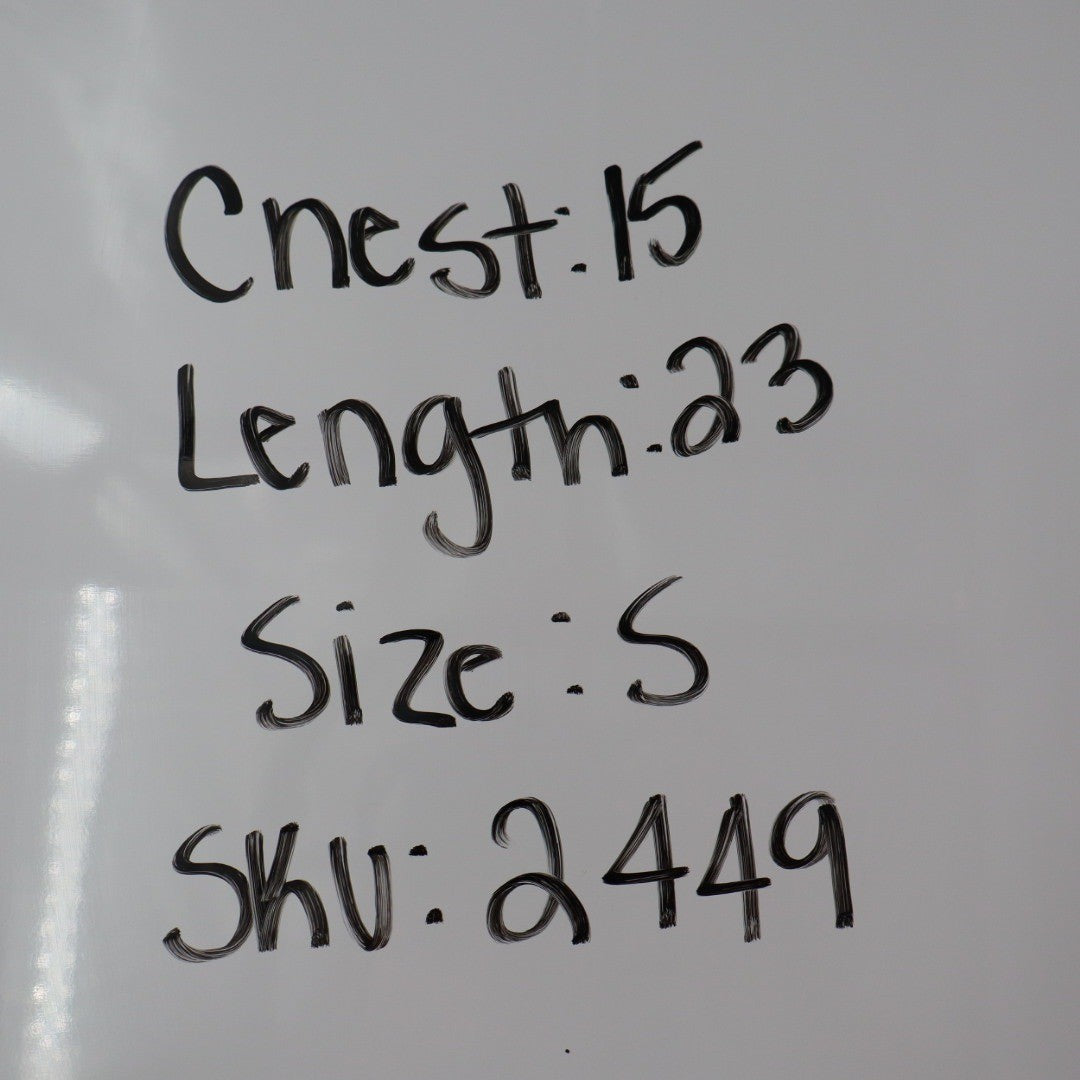 Chest: 15
Length: 23
Size: S
SKU: 2449